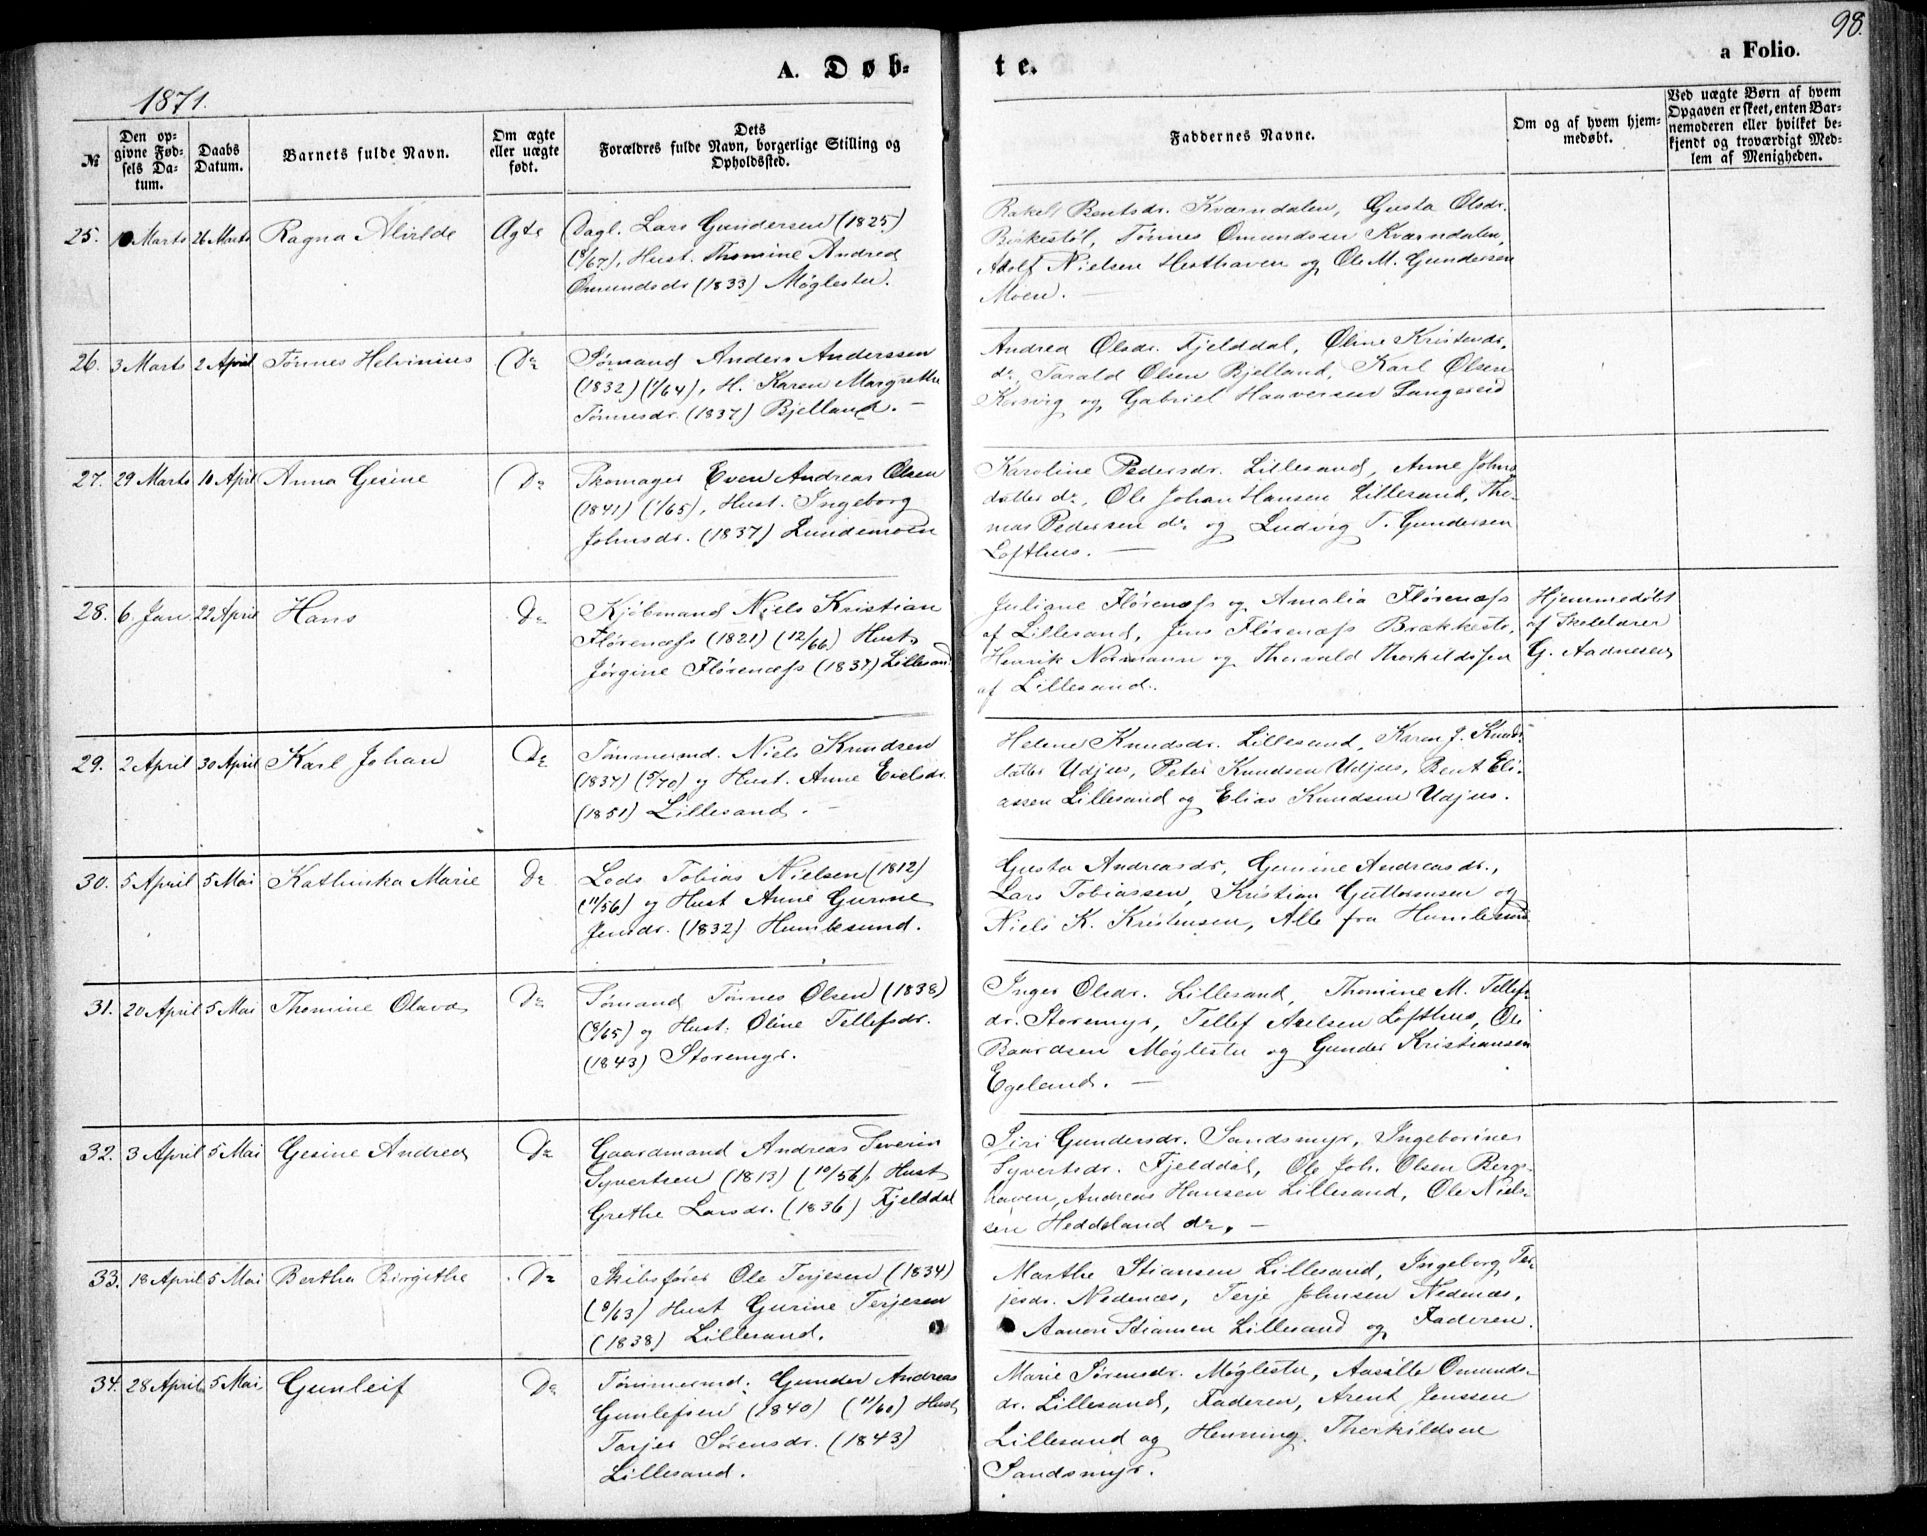 98.
A. Døb-
te.
a Folio.
1871.
№
Den op-
givne Fød-
sels Da-
tum.
Daabs
Datum.
Barnets fulde Navn.
Om ægte
eller uægte
født.
Dets
Forældres fulde Navn, borgerlige Stilling og
Opholdssted.
Faddernes Navne.
Om og af hvem hjem-
medøbt.
Ved uægte Børn af hvem
Opgaven er skeet, enten Bar-
nemoderen eller hvilket be-
kjendt og troværdigt Med-
lem af Menigheden.
25. Marts 26 Marts Ragna Alvilde Ægte
Dagl. Lars Gundersen (1825)
(8/67), Hust. Thomine Andrea
Omundsdr (1833) Møglestu.
Rakel Bentsdr. Kværndalen, Gusta Olsdr.
Birkestøl, Tønnes Omundsen Kværndalen,
Adolf Nielsen Hesthaven og Ole M. Gundersen
Moen. —
26. 3 Marts 2 April Tønnes Helvinius Do
Sømand Anders Anderssen
(1832) (1/64), H. Karen Margrethe
Tønnesdr. (1837) Bjelland. —
Andrea Olsdr. Fjelddal, Oline Kristensdr.
do, Tarald Olsen Bjelland, Karl Olsen
Korsvig og Gabriel Haaversen Langereid
27. 29 Marts 10 April Anna Gesine Do
Skomager Even Andreas Olsen
(1841) (1/65), Hust. Ingeborg
Johnsdr. (1837) Lundemoen
Karoline Pedersdr. Lillesand, Anne Johns
datter do, Ole Johan Hansen Lillesand, Tho-
mas Pedersen do og Ludvig T. Gundersen
Lofthus. —
28. 6 Jan 22 April Hans Do
Kjøbmand Niels Kristian
Florenæss (1821) (12/66) Hust.
Jørgine Florenæss (1837) Lillesand
Juliane Florenæss og Amalia Florenæss
af Lillesand, Jens Florenæss Brækkestø,
Henrik Normann og Thorvald Thorkildssen
af Lillesand.
Hjemmedøbt
af Skolelærer
G. Aadnesen
29. 2 April 30 April Karl Johan Do
Tømmermd. Niels Knudsen
(1837) (5/70) og Hust. Anne
(1851) Lillesand. —
Helene Knudsdr. Lillesand, Karen J. Knuds-
datter Udjus, Peter Knudsen Udjus, Bent Eli-
assen Lillesand og Elias Knudsen Udjus.
30. 5 April 5 Mai Kathinka Marie Do
Lods Tobias Nielsen (1812)
(11/56) og Hust Anne Gurine
Jensdr. (1832) Humlesund.
Gusta Andreasdr, Gemine Andreasdr.,
Lars Tobiassen, Kristian Guttormsen og
Niels K. Kristensen, Alle fra Humlesund
31. 20 April 5 Mai Thomine Olava Do
Sømand Tønnes Olsen (1838)
(8/65) og Hust. Oline Tellefsdr.
(1843) Storemyr.
Inger Olsdr. Lillesand, Thomine M. Tellefs-
dr. Storemyr, Tellef Axelsen Lofthus, Ole
Baardsen Møglestu og Gunder Kristiansen
Egeland. —
32. 3 April 5 Mai Gesine Andrea Do
Gaardmand Andreas Severin
Syvertsen (1813) (10/56), Hust
Grethe Larsdr. (1836) Fjelddal
Siri Gundersdr. Sandsmyr, Ingeborine
Syvertsdr. Fjelddal, Ole Joh. Olsen Berge-
haven, Andreas Hansen Lillesand, Ole Niel-
sen Heddeland do. —
33. 18 April 5 Mai Bertha Birgithe Do
Skibsfører Ole Terjesen (1834)
(9/63) Hust Gurine Terjesen
(1838) Lillesand.
Marthe Stiansen Lillesand, Ingeborg Ter-
jesdr. Nedenæs, Terje Johnsen Nedenæs,
Aanon Stiansen Lillesand og Faderen.
34. 28 April 5 Mai Gunleif Do
Tømmermd. Gunder Andreas
Gunlefsen (1840) (11/60) Hust
Tarjer Sørensdr. (1843)
Lillesand.
Marie Sørensdr. Møglestu, Aasille Omunds-
dr. Lillesand, Faderen, Arent Jenssen
Lillesand og Henning Thorkildsen
Sandsmyr.